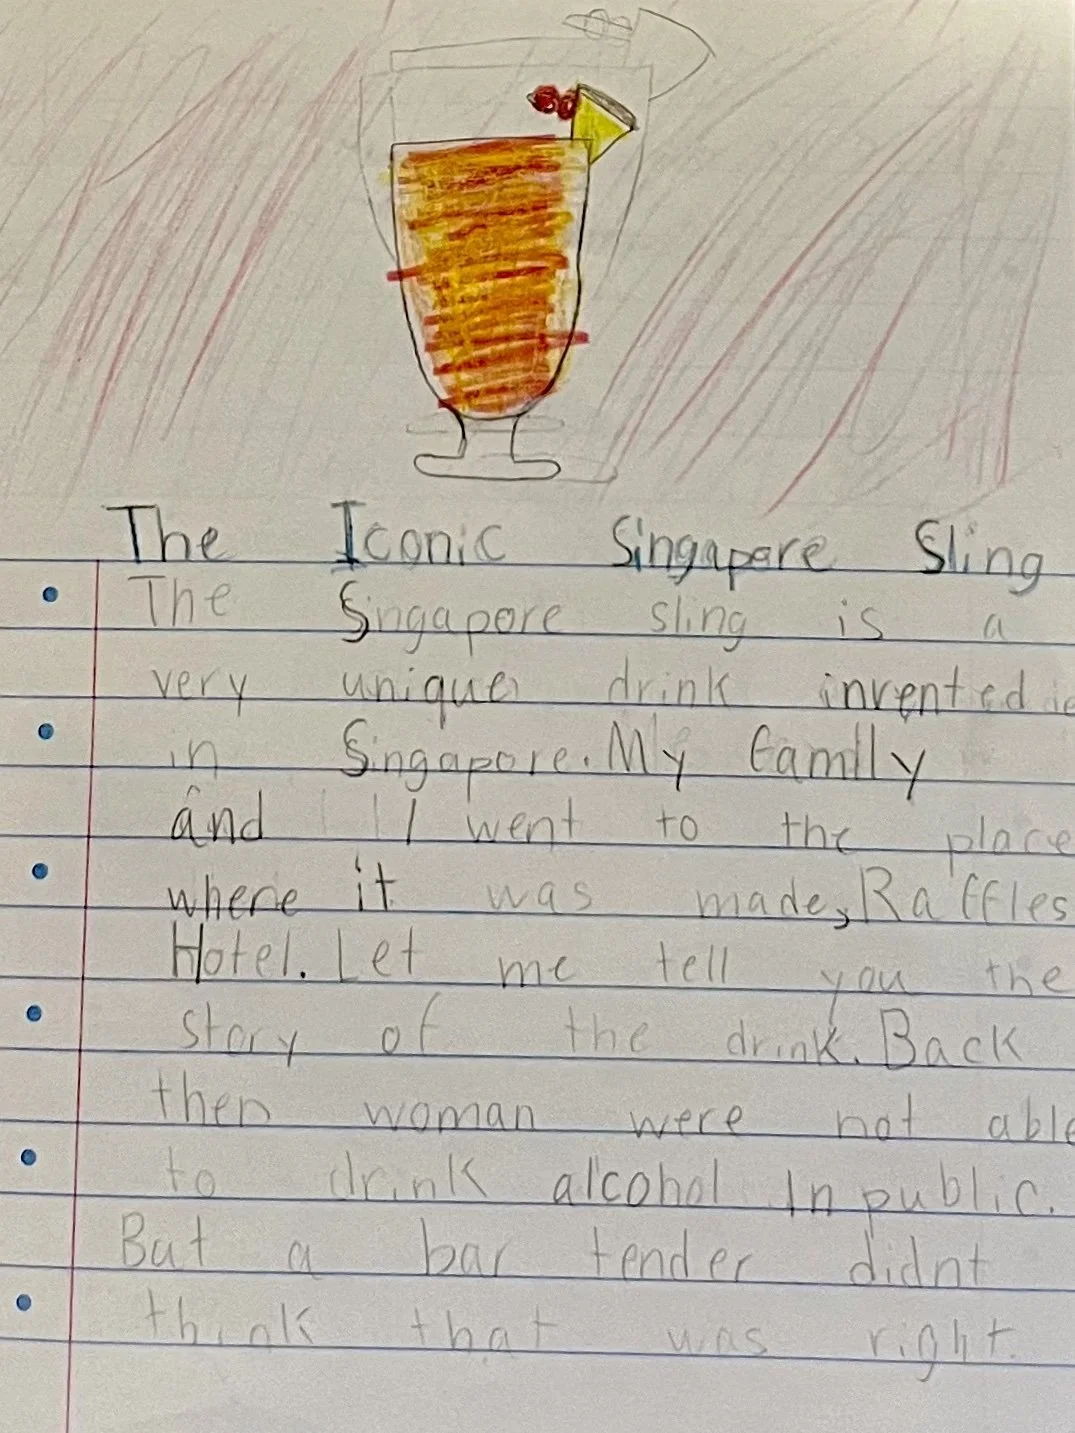 The Iconic Singapore Sling
The Singapore sling is a
very unique drink invented
in Singapore. My family
and I went to the place
where it was made, Raffles
Hotel. Let me tell you the
story of the drink. Back
then woman were not able
to drink alcohol in public.
But a bar tender didnt
think that was right.